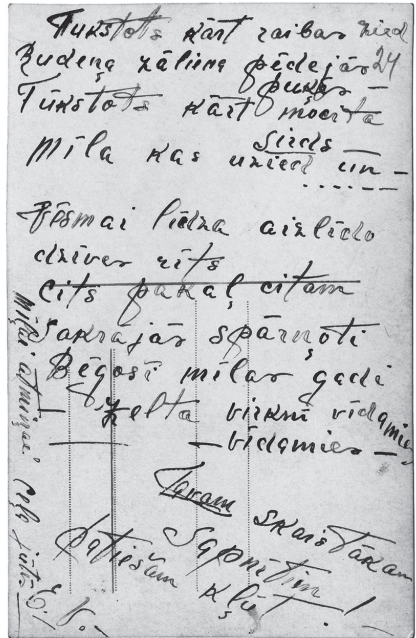 Tūkstots kārt raibas zied
Rudeņa zāliena pēdejās 24
puķes –
Tūkstots kārt mocita
Sirds
Mīla kas uzied un –
Vēsmai līdza aizlīdo
dzīves rīts
Cits pakaļ citam
Sakrājās spārnoti
Bēgoši mīlas gadi
Zelta virknī vīdamies
– vīdamies –
Tavam skaistākam
Sapnītim
patiešām kļūt!
Mīļai atmiņai Ceļa jūtīs
E. V.